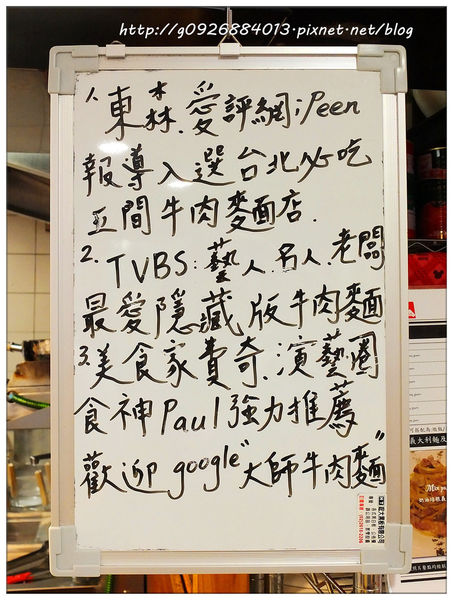 http://g0926884013.pixnet.net/blog
1.東森.愛評網iPeen
報導入選台北必吃
五間牛肉麵店.
2.TVBS.藝人.名人.老闆
最愛隱藏版牛肉麵
3.美食家費奇.演藝圈
食神Paul強力推薦
歡迎google"大師牛肉麵"